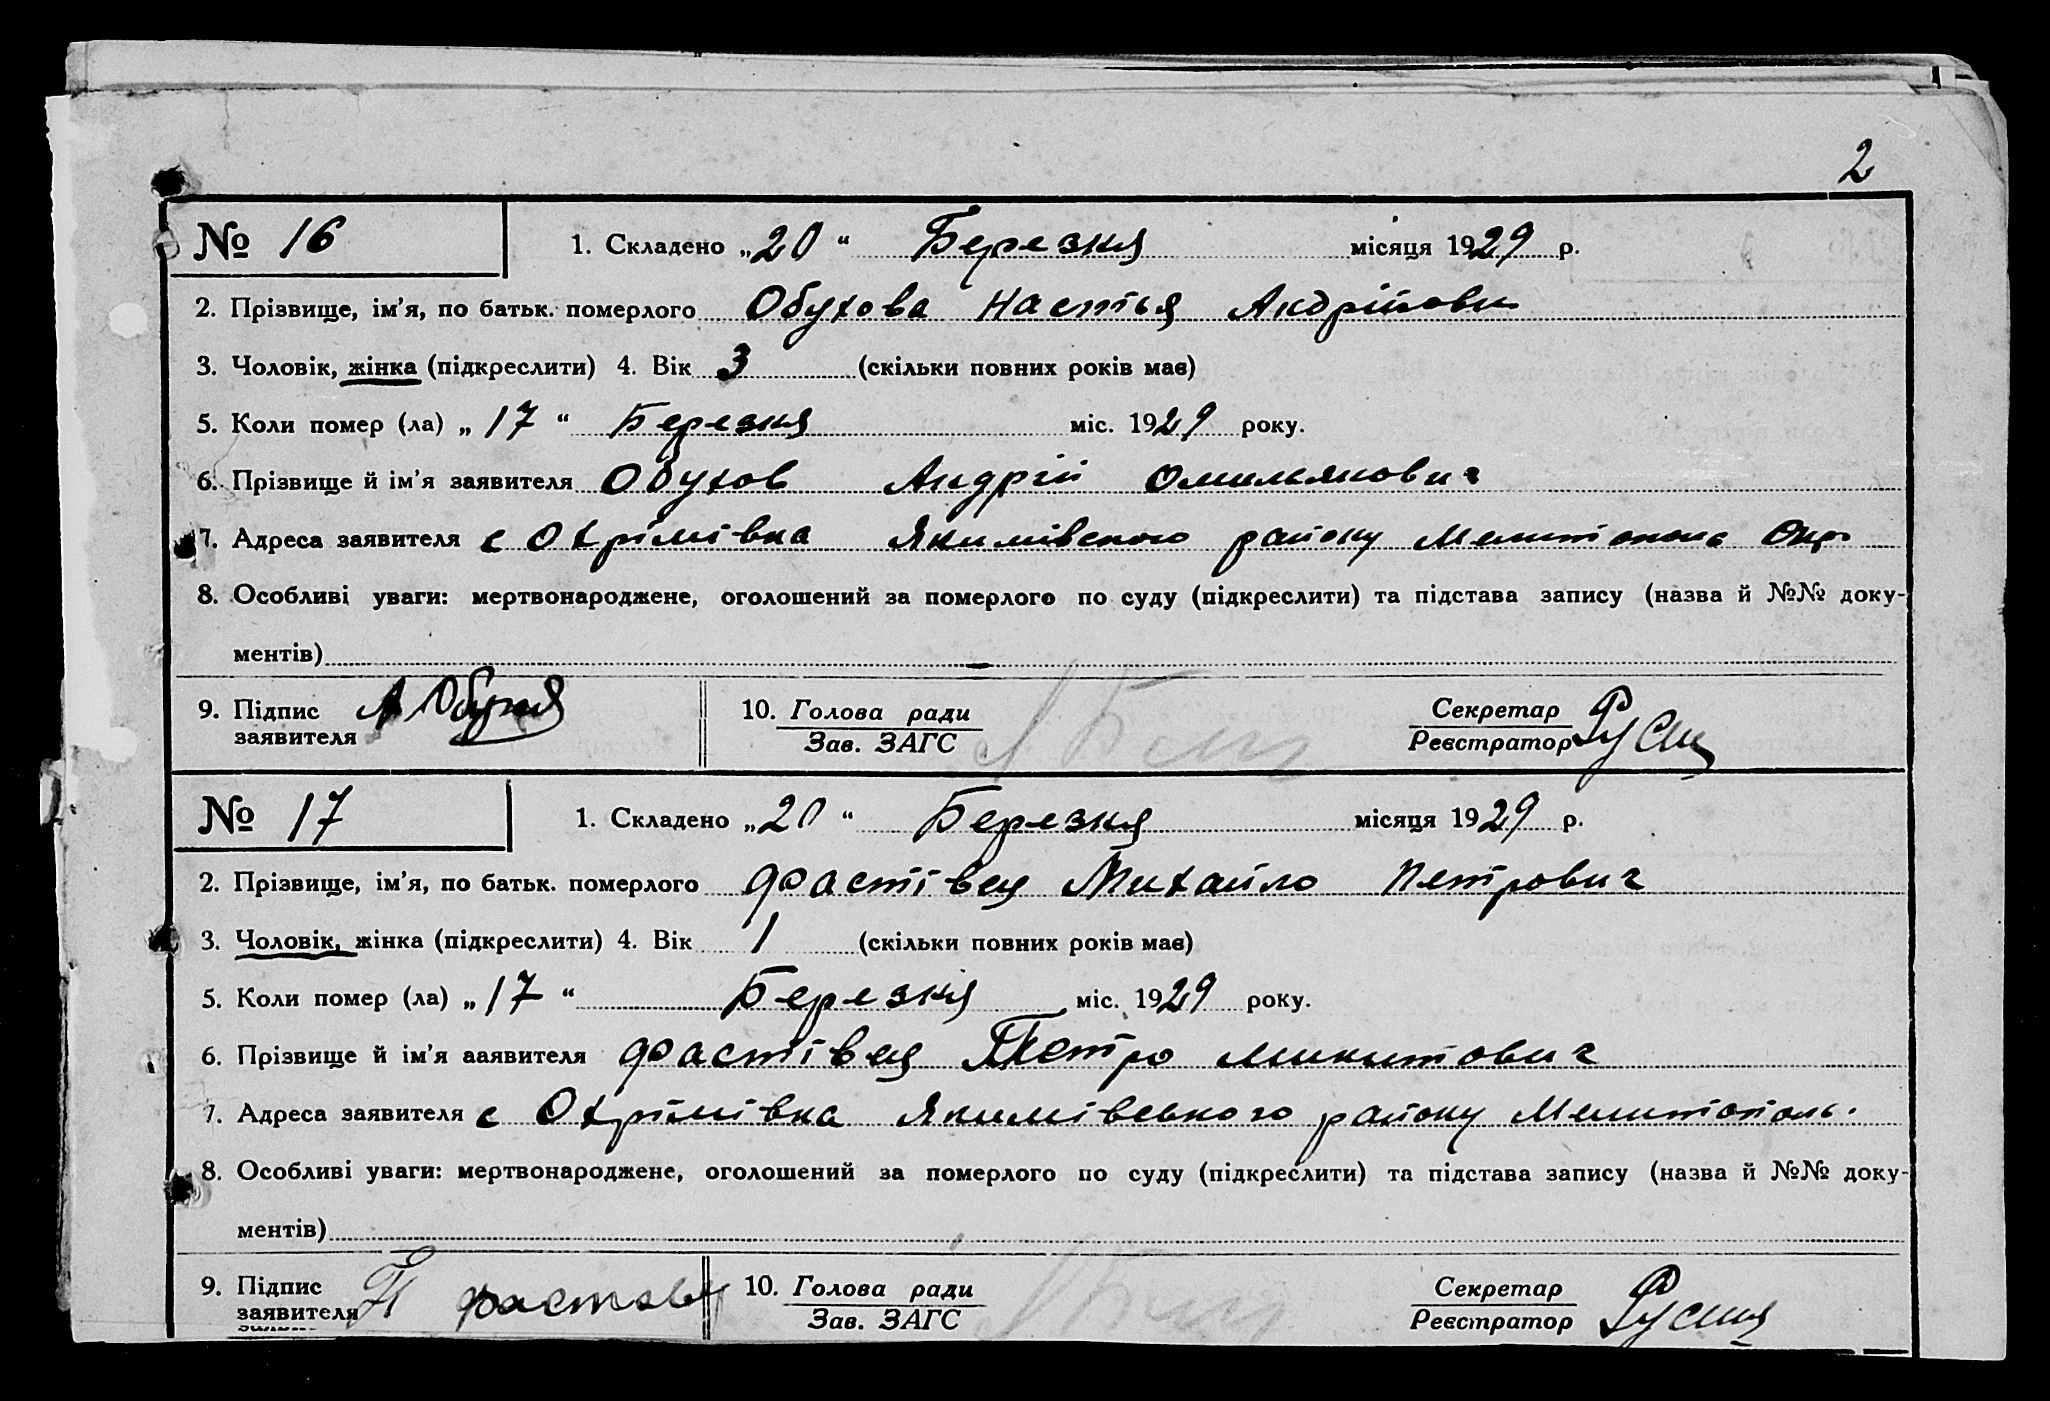 2
№ 16 1. Складено „20“ Березня місяця 1929 р.
2. Прізвище, ім’я, по батьк. померлого Обухова Настья Андрійовн
3. Чоловік, жінка (підкреслити) 4. Вік 3 (скільки повних років має)
5. Коли помер (ла) „17“ Березня міс. 1929 року.
6. Прізвище й ім’я заявителя Обухов Андрій Омильянович
7. Адреса заявителя с Охрімівка Якимівского району Мелитополь Окр
8. Особливі уваги: мертвонароджене, оголошений за померлого по суду (підкреслити) та підстава запису (назва й №№ доку-
ментів)
9. Підпис заявителя А 10. Голова ради Секретар
Зав. ЗАГС Реєстратор
№ 17 1. Складено „20“ Березня місяця 1929 р.
2. Прізвище, ім’я, по батьк. померлого Фастівец Михайло Петрович
3. Чоловік, жінка (підкреслити) 4. Вік 1 (скільки повних років має)
5. Коли помер (ла) „17“ Березня міс. 1929 року.
6. Прізвище й ім’я ааявителя Фастівец Петро Микитович
7. Адреса заявителя с Охрімівка Якимівського району Мелитополь.
8. Особливі уваги: мертвонароджене, оголошений за померлого по суду (підкреслити) та підстава запису (назва й №№ доку-
ментів)
9. Підпис заявителя П 10. Голова ради Секретар
Зав. ЗАГС Реєстратор